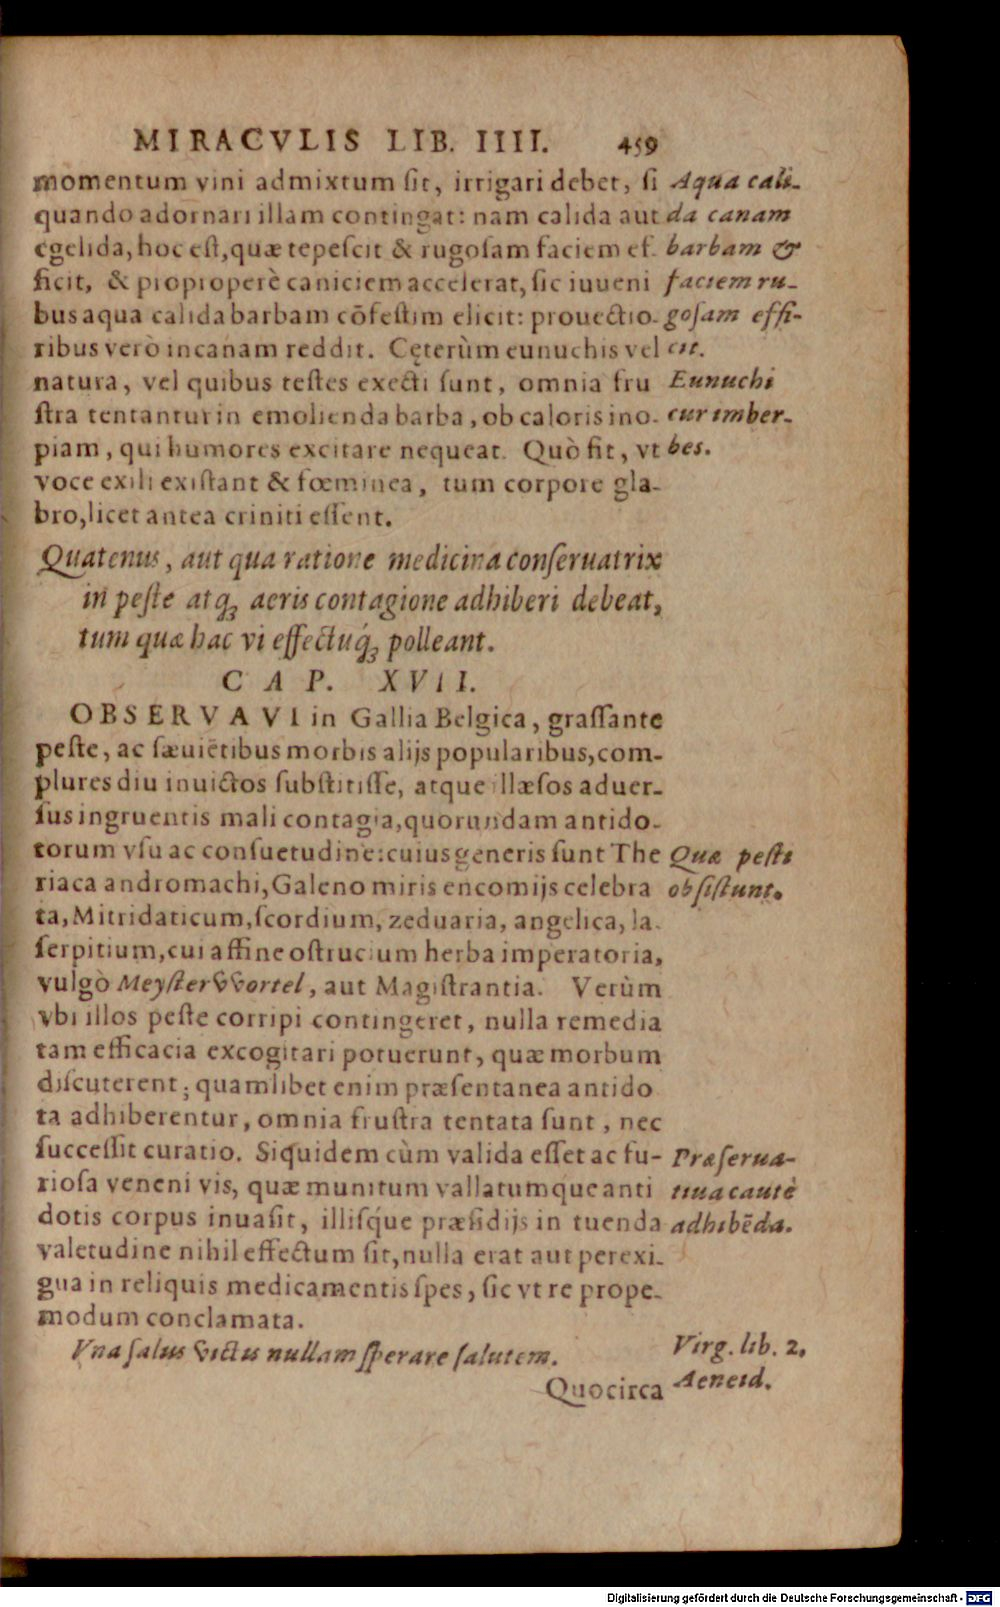 MIRACVLIS LIB. IIII. 459
momentum vini admixtum sit, irrigari debet, si
quando adornari illam contingat: nam calida aut
egelida, hoc est, quæ tepescit & rugosam faciem ef-
ficit, & propropere caniciem accelerat, sic iuueni
bus aqua calida barbam cōfestim elicit: prouectio-
ribus verò incanam reddit. Cęterùm eunuchis vel
natura, vel quibus testes execti sunt, omnia fru
stra tentantur in emolienda barba, ob caloris ino-
piam, qui humores excitare nequeat. Quò fit, vt
voce exili existant & fœminea, tum corpore gla-
bro, licet antea criniti essent.
Aqua cali-
da canam
barbam &
faciem ru-
gosam effi-
cit.
Eunuchi
cur imber-
bes.
Quatenus, aut qua ratione medicina conseruatrix
in peste atq; aeris contagione adhiberi debeat,
tum quæ hac vi effectuq́; polleant.
CAP. XVII.
OBSERVAVI in Gallia Belgica, grassante
peste, ac sæuiētibus morbis alijs popularibus, com-
plures diu inuictos substitisse, atque illæsos aduer-
sus ingruentis mali contagia, quorundam antido-
torum vsu ac consuetudine: cuius generis sunt The
riaca andromachi, Galeno miris encomijs celebra
ta, Mitridaticum, scordium, zeduaria, angelica, la-
serpitium, cui affine ostrucium herba imperatoria,
vulgò Meyster VVortel, aut Magistrantia. Verùm
vbi illos peste corripi contingeret, nulla remedia
tam efficacia excogitari potuerunt, quæ morbum
discuterent; quamlibet enim præsentanea antido
ta adhiberentur, omnia frustra tentata sunt, nec
successit curatio. Siquidem cùm valida esset ac fu-
riosa veneni vis, quæ munitum vallatumque anti
dotis corpus inuasit, illisq́ue præsidijs in tuenda
valetudine nihil effectum sit, nulla erat aut perexi-
gua in reliquis medicamentis spes, sic vt re prope-
modum conclamata.
Vna salus victis nullam sperare salutem.
Quæ pesti
obsistunt.
Præserua-
tiua cautè
adhibēda.
Virg. lib. 2.
Aeneid.
Quocirca
Digitalisierung gefördert durch die Deutsche Forschungsgemeinschaft - DFG